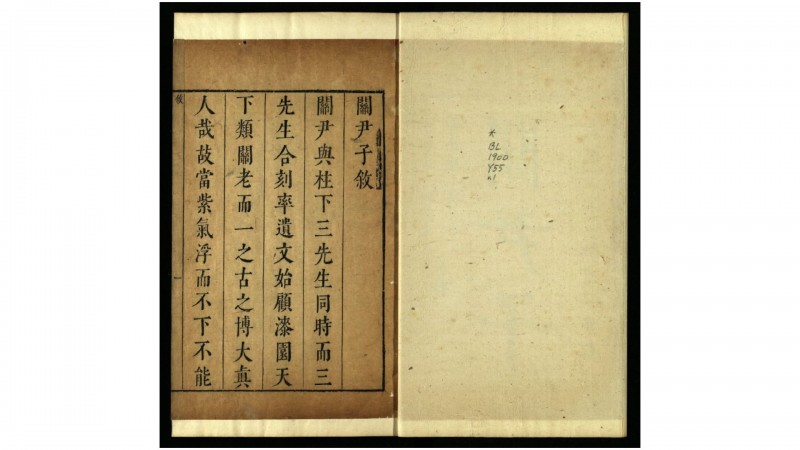 *
BL
1900
Y55
v1
關尹子敘
關尹與柱下三先生同時而三
先生合刻率遺文始顧漆園天
下類關老而一之古之博大真
人哉故當紫氣浮而不下不能
敘
一